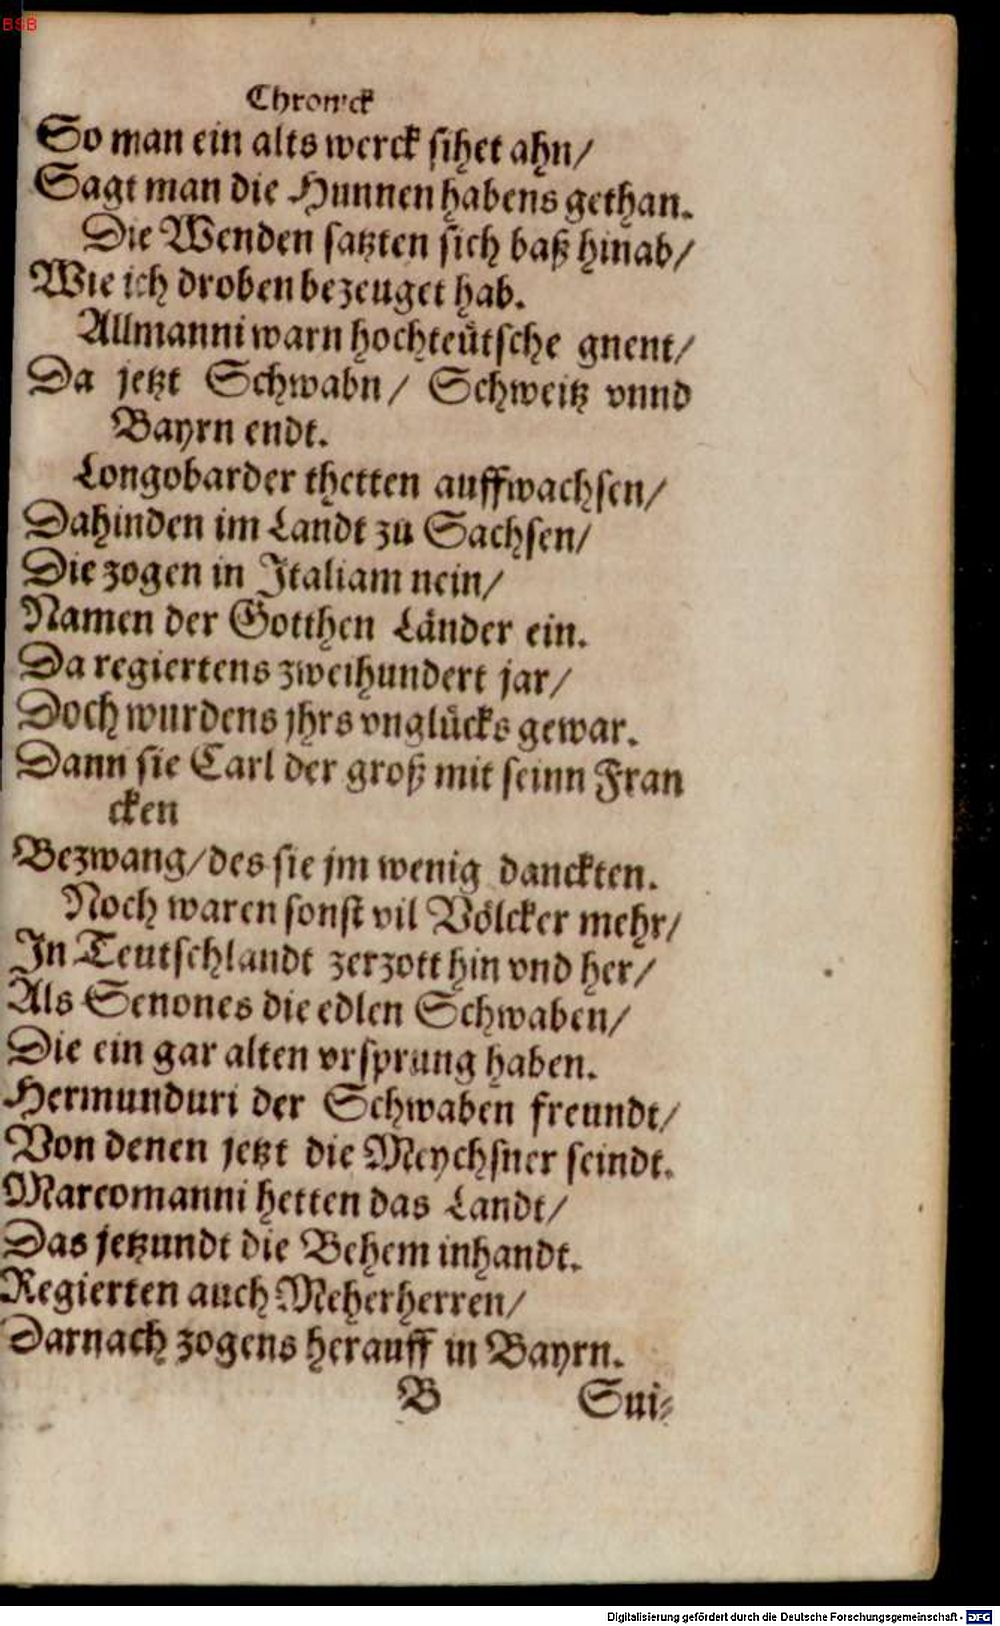 BSB
Chronick
So man ein alts werck sihet ahn/
Sagt man die Hunnen habens gethan.
Die Wenden satzten sich baß hinab/
Wie ich droben bezeuget hab.
Allmanni warn hochteütsche gnent/
Da jetzt Schwabn/ Schweitz vnnd
Bayrn endt.
Longobarder thetten auffwachsen/
Dahinden im Landt zu Sachsen/
Die zogen in Italiam nein/
Namen der Gotthen Länder ein.
Da regiertens zweihundert jar/
Doch wurdens jhrs vnglücks gewar.
Dann sie Carl der groß mit seinn Fran
cken
Bezwang/ des sie jm wenig danckten.
Noch waren sonst vil Völcker mehr/
In Teutschlandt zerzott hin vnd her/
Als Senones die edlen Schwaben/
Die ein gar alten vrsprung haben.
Hermunduri der Schwaben freundt/
Von denen jetzt die Meychsner seindt.
Marcomanni hetten das Landt/
Das jetzundt die Behem inhandt.
Regierten auch Meherherren/
Darnach zogens herauff in Bayrn.
B Sui⸗
Digitalisierung gefördert durch die Deutsche Forschungsgemeinschaft - DFG